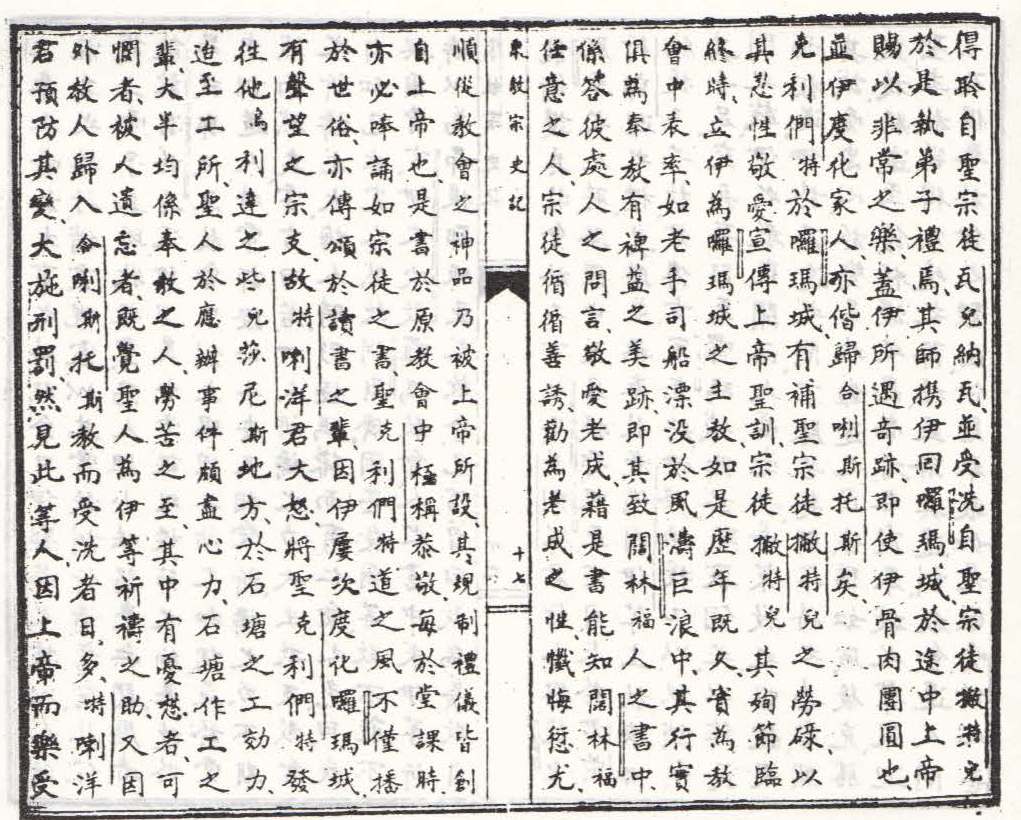 得聆自聖宗徒瓦兒納瓦、並受洗自聖宗徒撇特兒
於是執弟子禮焉、其師攜伊回囉瑪城、於途中上帝
賜以非常之樂、蓋伊所遇奇跡、即使伊骨肉團圓也、
並伊度化家人、亦偕歸合唎斯托斯矣、
克利們特於囉瑪城有補聖宗徒撇特兒之勞碌、以
其忍性敬愛宣傳上帝聖訓、宗徒撇特兒其殉節臨
終時、立伊為囉瑪城之主教、如是歷年既久、實為教
會中表率、如老手司船漂沒於風濤巨浪中、其行實
俱為奉教有裨益之美跡、即其致闊林福人之書中、
係答彼處人之問言、敬愛老成、藉是書能知闊林福
任意之人、宗徒循循善誘、勸為老成之性、懺悔愆尤
東教宗史記 十七
順從教會之神品、乃被上帝所設、其規制禮儀皆創
自上帝也、是書於原教會中極稱恭敬、每於堂課時、
亦必奉誦如宗徒之書、聖克利們特道之風、不僅播
於世俗、亦傳頌於讀書之輩、因伊屢次度化囉瑪城
有聲望之宗支、故特唎洋君大怒、將聖克利們特發
往他鳥利達之些兒莎尼斯地方、於石塘之工効力、
迨至工所、聖人於應辦事件頗盡心力、石塘作工之
輩、大半均係奉教之人、勞苦之至、其中有憂愁者、可
憫者、被人遺忘者、既覺聖人為伊等祈禱之助、又因
外教人歸入合唎斯托斯教而受洗者日多、特唎洋
君預防其變、大施刑罰、然見此等人、因上帝而樂受